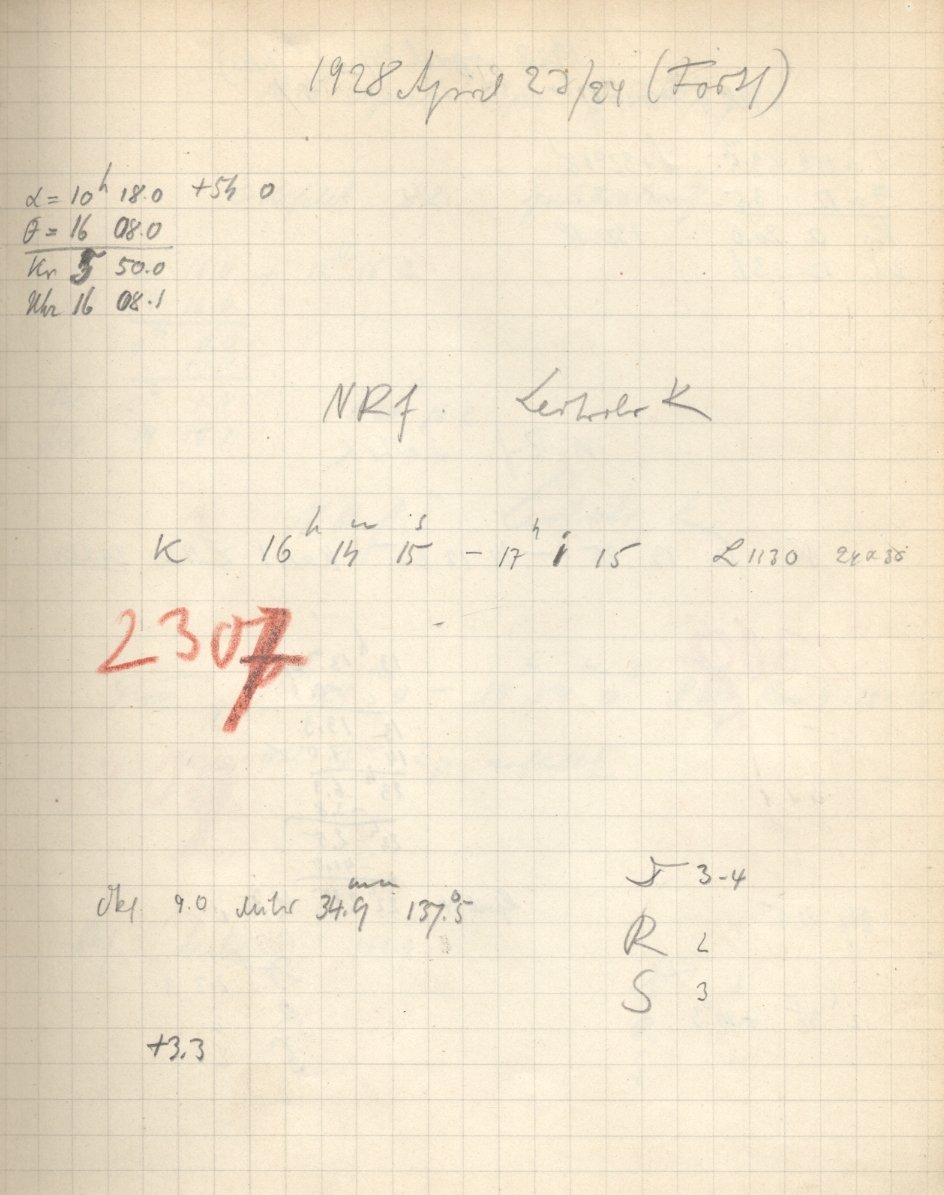 1928 April 23/24 (Forts)
α = 10h 18.0 +54 0
θ = 16 08.0
Kr 5 50.0
Uhr 16 08.1
NRf. Leitrohr K
K 16h 14m 15s - 17h 1 15 L 1130 24x30
2307
Okl. 9.0 Mikr 34.9mm 137.°5
J 3-4
R 2
S 3
+3.3